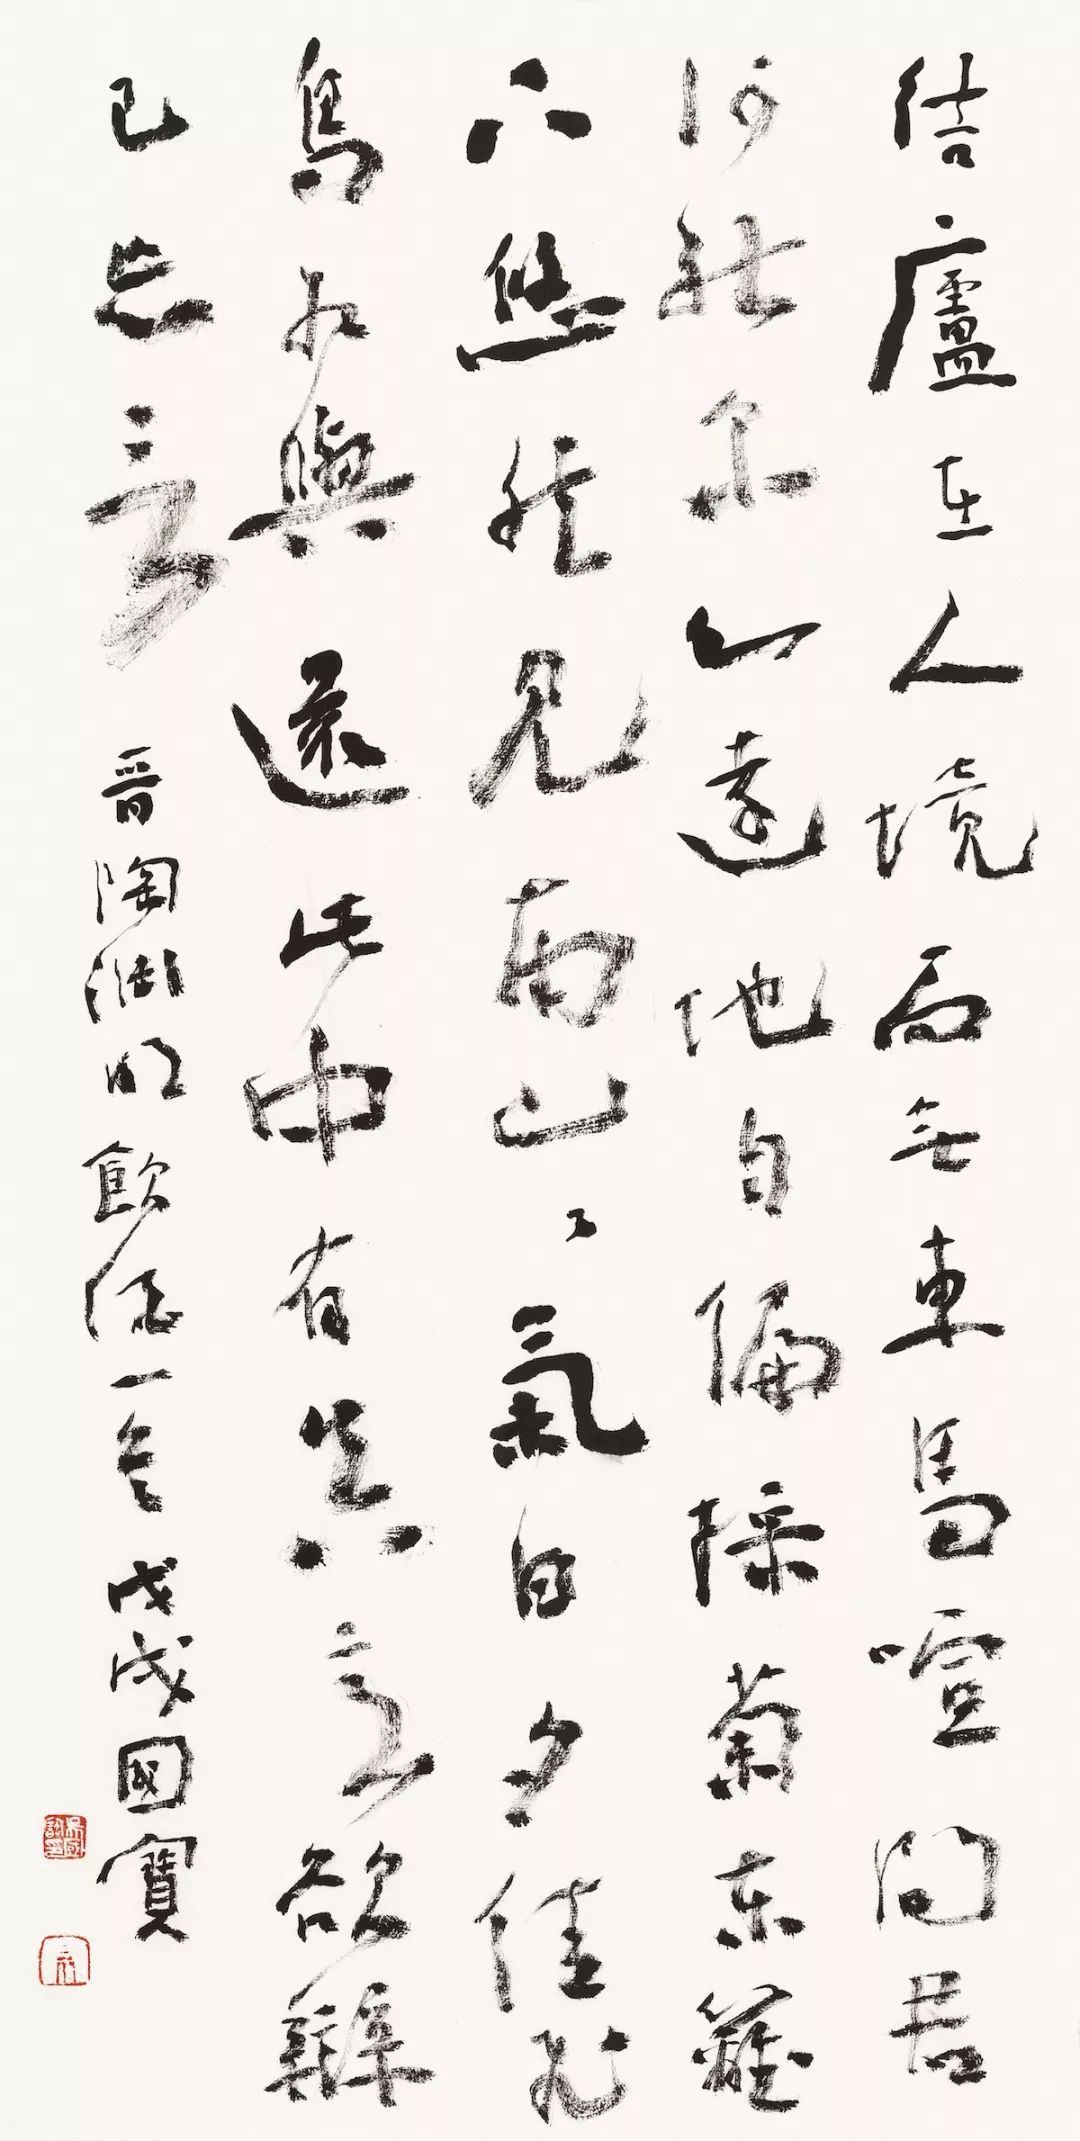 結廬在人境而無車馬喧問君
何能尔心遠地自偏採菊东籬
下悠然見南山〻氣日夕佳飛
鳥相與還此中有真意欲辯
已忘言 晋陶淵明飲酒一首 戊戌國寶